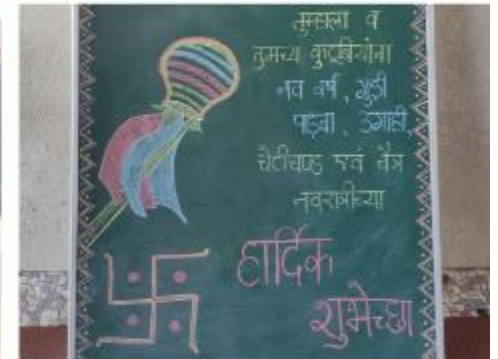 तुम्हाला व
तुमच्या कुटुंबियांना
नव वर्ष, गुढी
पाडवा, उगाही,
चेटीचण्ड एवं चैत्र
नवरात्रीच्या
हार्दिक
शुभेच्छा